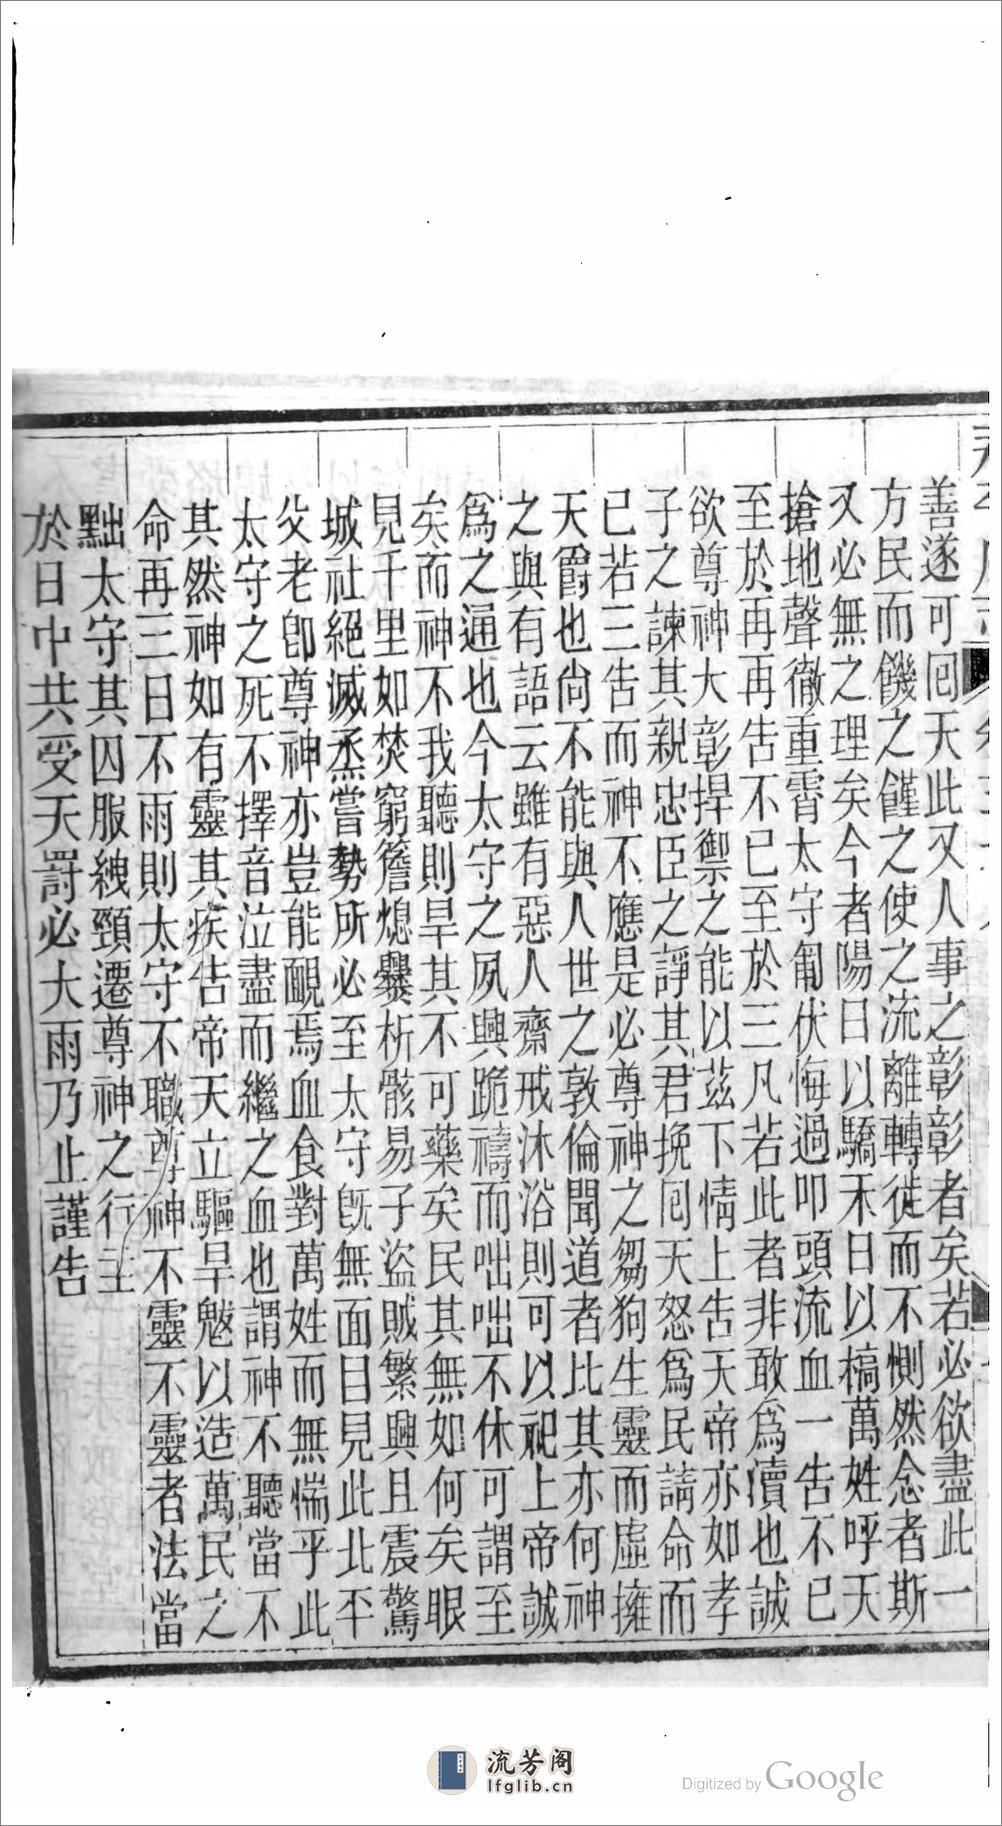 善遂可囘天此又人事之彰彰者矣若必欲盡此一
方民而饑之饉之使之流離轉徙而不惻然念者斯
又必無之理矣今者陽日以驕禾日以槁萬姓呼天
搶地聲徹重霄太守匍伏悔過叩頭流血一告不已
至於再再告不已至於三凡若此者非敢爲瀆也誠
欲尊神大彰捍禦之能以茲下情上告天帝亦如孝
子之諫其親忠臣之諍其君挽囘天怒爲民請命而
已若三告而神不應是必尊神之芻狗生靈而虛擁
天爵也尙不能與人世之敦倫聞道者比其亦何神
之與有語云雖有惡人齋戒沐浴則可以祀上帝誠
爲之通也今太守之夙興跪禱而咄咄不休可謂至
矣而神不我聽則旱其不可藥矣民其無如何矣眼
見千里如焚窮簷熄爨析骸易子盜賊繁興且震驚
城社絕滅烝嘗勢所必至太守旣無面目見此北平
父老卽尊神亦豈能靦焉血食對萬姓而無惴乎此
太守之死不擇音泣盡而繼之血也謂神不聽當不
其然神如有靈其疾告帝天立驅旱魃以造萬民之
命再三日不雨則太守不職尊神不靈不靈者法當
黜太守其囚服絏頸遷尊神之行主
於日中共受天罰必大雨乃止謹告
流芳阁
lfglib.cn
Digitized by Google